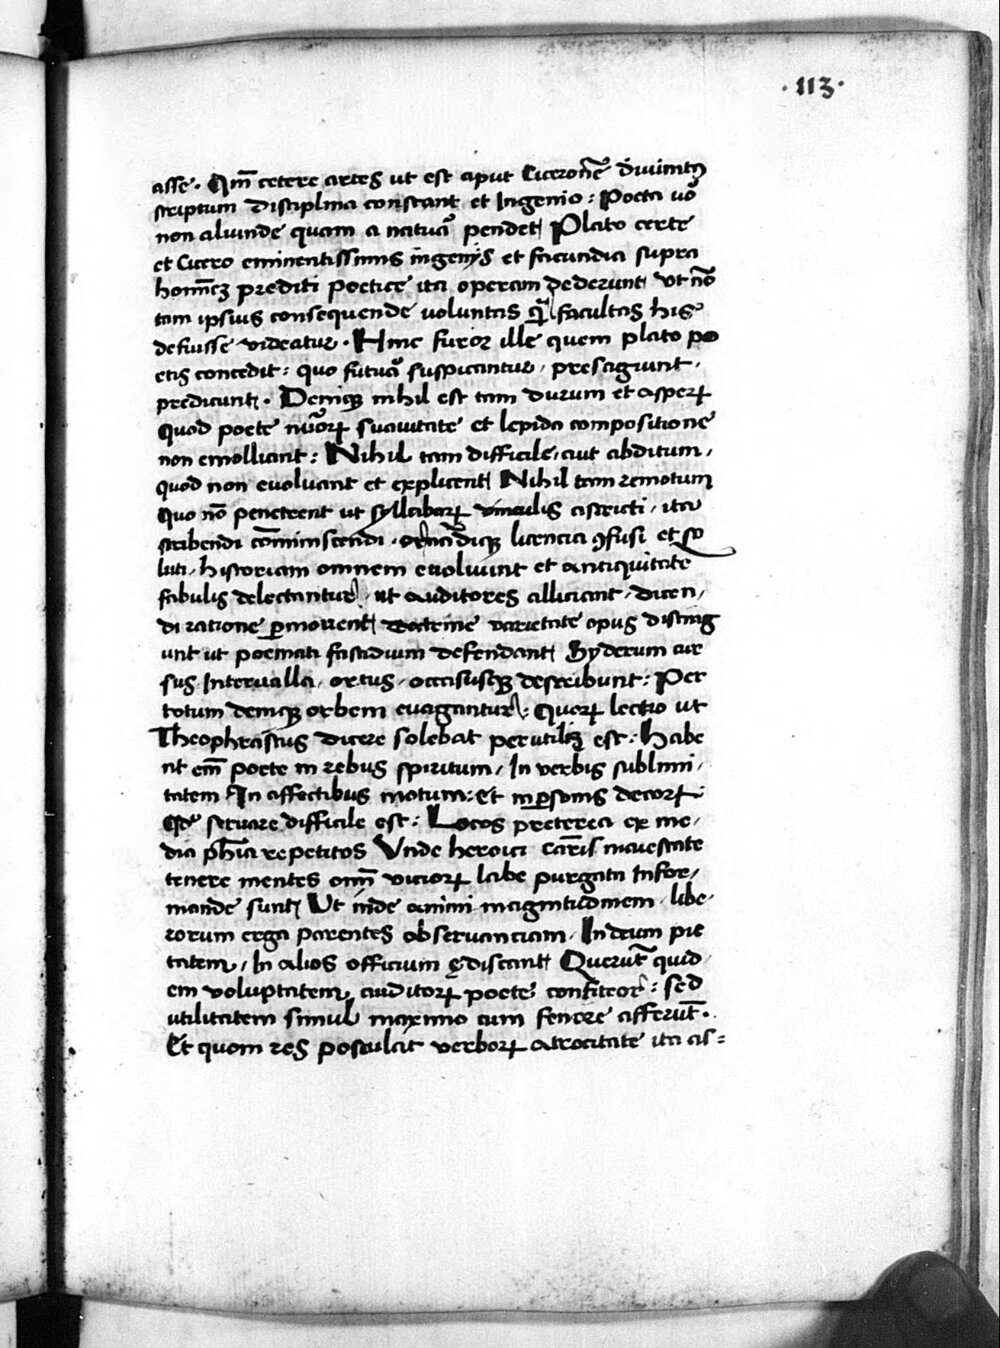 ·113·
asse. Qm̄ cetere artes ut est aput Ciceronē diuinitꝰ
scriptum disciplina constant et Ingenio: Poeta uō
non aliunde quam a natura pendet Plato certe
et Cicero eminentissimis ingenijs et facundia supra
homīes prediti poetice ita operam dederunt Vt nō
tam ipsius consequende uoluntas q̄ facultas his
defuisse videatur. Hinc furor ille quem plato po
etis concedit: quo futura suspicantur, presagiunt,
predicunt. Deniqꝫ nihil est tam durum et asperꝝ
quod poete nūorꝝ suauitate et lepida compositione
non emolliant: Nihil tam difficile, aut abditum,
quod non euoluant et explicent Nihil tam remotum
Quo nō penetrent ut syllabarꝝ vinculis astricti, ita
scribendi cōminiscendi. ornādiqꝫ licencia ꝯfusi et so
luti, historiam omnem euoluunt et antiquitate
fabulis delectantur, ut auditores alliciant, dicen,
di ratione ꝑmouent doctrine varietate opus disting
unt ut poemati fastidium defendant Syderum cur
sus Interualla, ortus, occasusqꝫ describunt: Per
totum deniqꝫ orbem euagantur: Quorꝝ lectio ut
Theophrastus dicere solebat perutilis est: Habe
nt em̄ poete in rebus spiritum, In verbis sublimi,
tatem In affectibus motum: et in ꝑsonis decorꝝ:
Qd̕ seruare difficile est: Locos preterea ex me,
dia phīa repetitos Vnde heroici carīs maiestate
tenere mentes omī viciorꝝ labe purgata Infor,
mande sunt Ut inde animi magnitudinem, libe,
rorum erga parentes obseruanciam, In deum pie
tatem, In alios officium ediscant Querūt quid
em voluptatem auditorꝝ poete confiteor: sed
utilitatem simul maximo cum fenore afferūt.
Et quom res postulat verborꝝ atrocitate ita as=